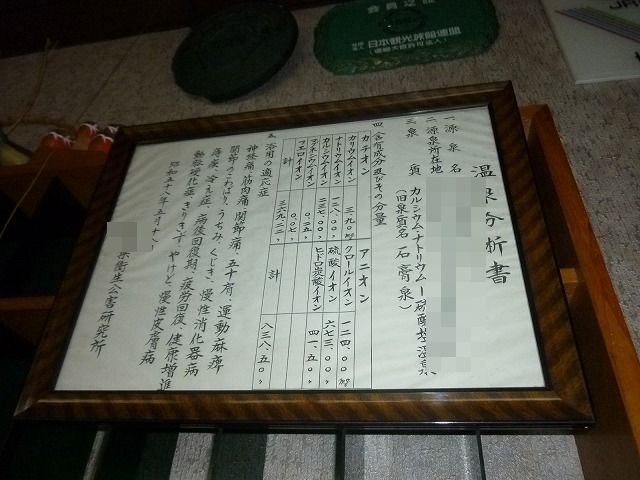 会員之証
日本観光旅館連盟
(運輸大臣許可法人)
温泉分析書
一 源泉名
二 源泉所在地
三 泉質 カルシウム・ナトリウム―硫酸塩温泉
(旧泉質名 石膏泉)
四 含有成分及びその分量
カチオン アニオン
カリウムイオン 三.九〇㎎ クロールイオン 一二四.〇〇㎎
ナトリウムイオン 一二八.〇〇〃 硫酸イオン 六七三.〇〇〃
カルシウムイオン 二三七.〇〇〃 ヒドロ炭酸イオン 四一.五〇〃
マグネシウムイオン 〇.二五〃
フエロイオン 〇.〇七〃
計 三六九.二二〃 計 八三八.五〇〃
五 浴用の適応症
神経痛、筋肉痛、関節痛、五十肩、運動麻痺
関節のこわばり、うちみ、くじき、慢性消化器病
痔疾、冷え症、病後回復期、疲労回復、健康増進
動脈硬化症、きりきず、やけど、慢性皮膚病
昭和五十八年五月十八
県衛生公害研究所